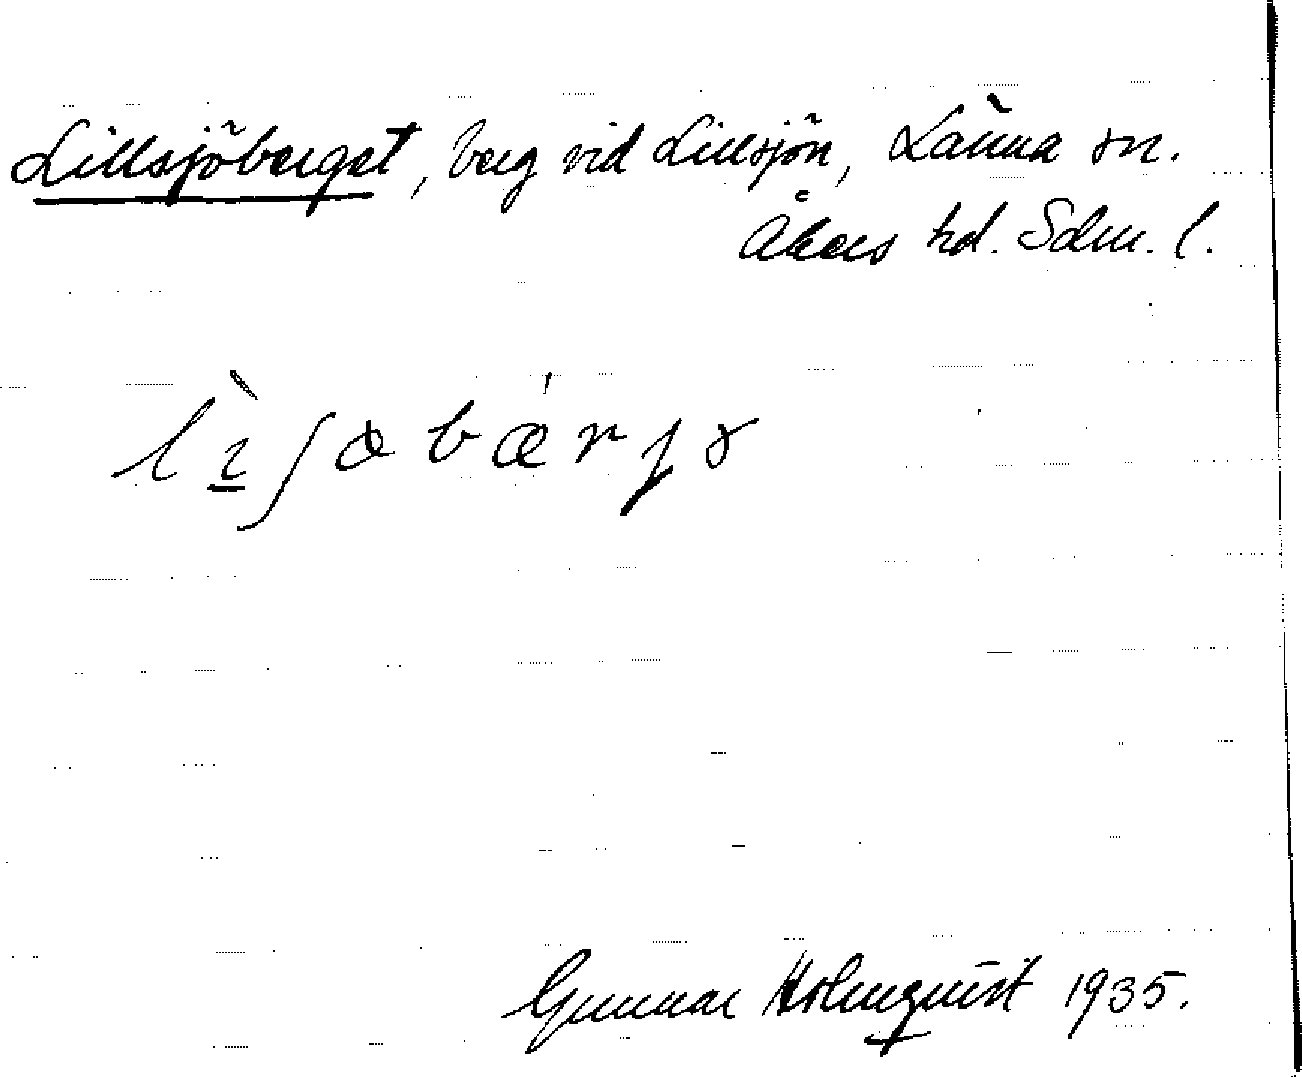 Lillsjöberget, berg vid Lillsjön, Länna sn.
Åkers hd. Sdm. l.
lìʃøbǽrjɤ
Gunnar Holmquist 1935.